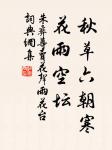 秋草六朝寒
花雨空坛
朱彝尊卖花声雨花台
詞典網集